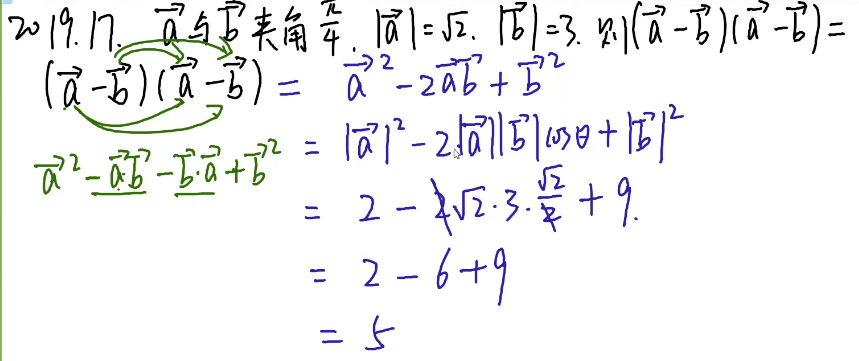 2019.17. a⃗与b⃗夹角π/4. |a⃗|=√2. |b⃗|=3. 则(a⃗-b⃗)(a⃗-b⃗)=
(a⃗-b⃗)(a⃗-b⃗) = a⃗²-2a⃗b⃗+b⃗²
a⃗²-a⃗·b⃗-b⃗·a⃗+b⃗²
= |a⃗|²-2·|a⃗||b⃗|cosθ+|b⃗|²
= 2-2√2·3·√2/2+9.
= 2-6+9
= 5